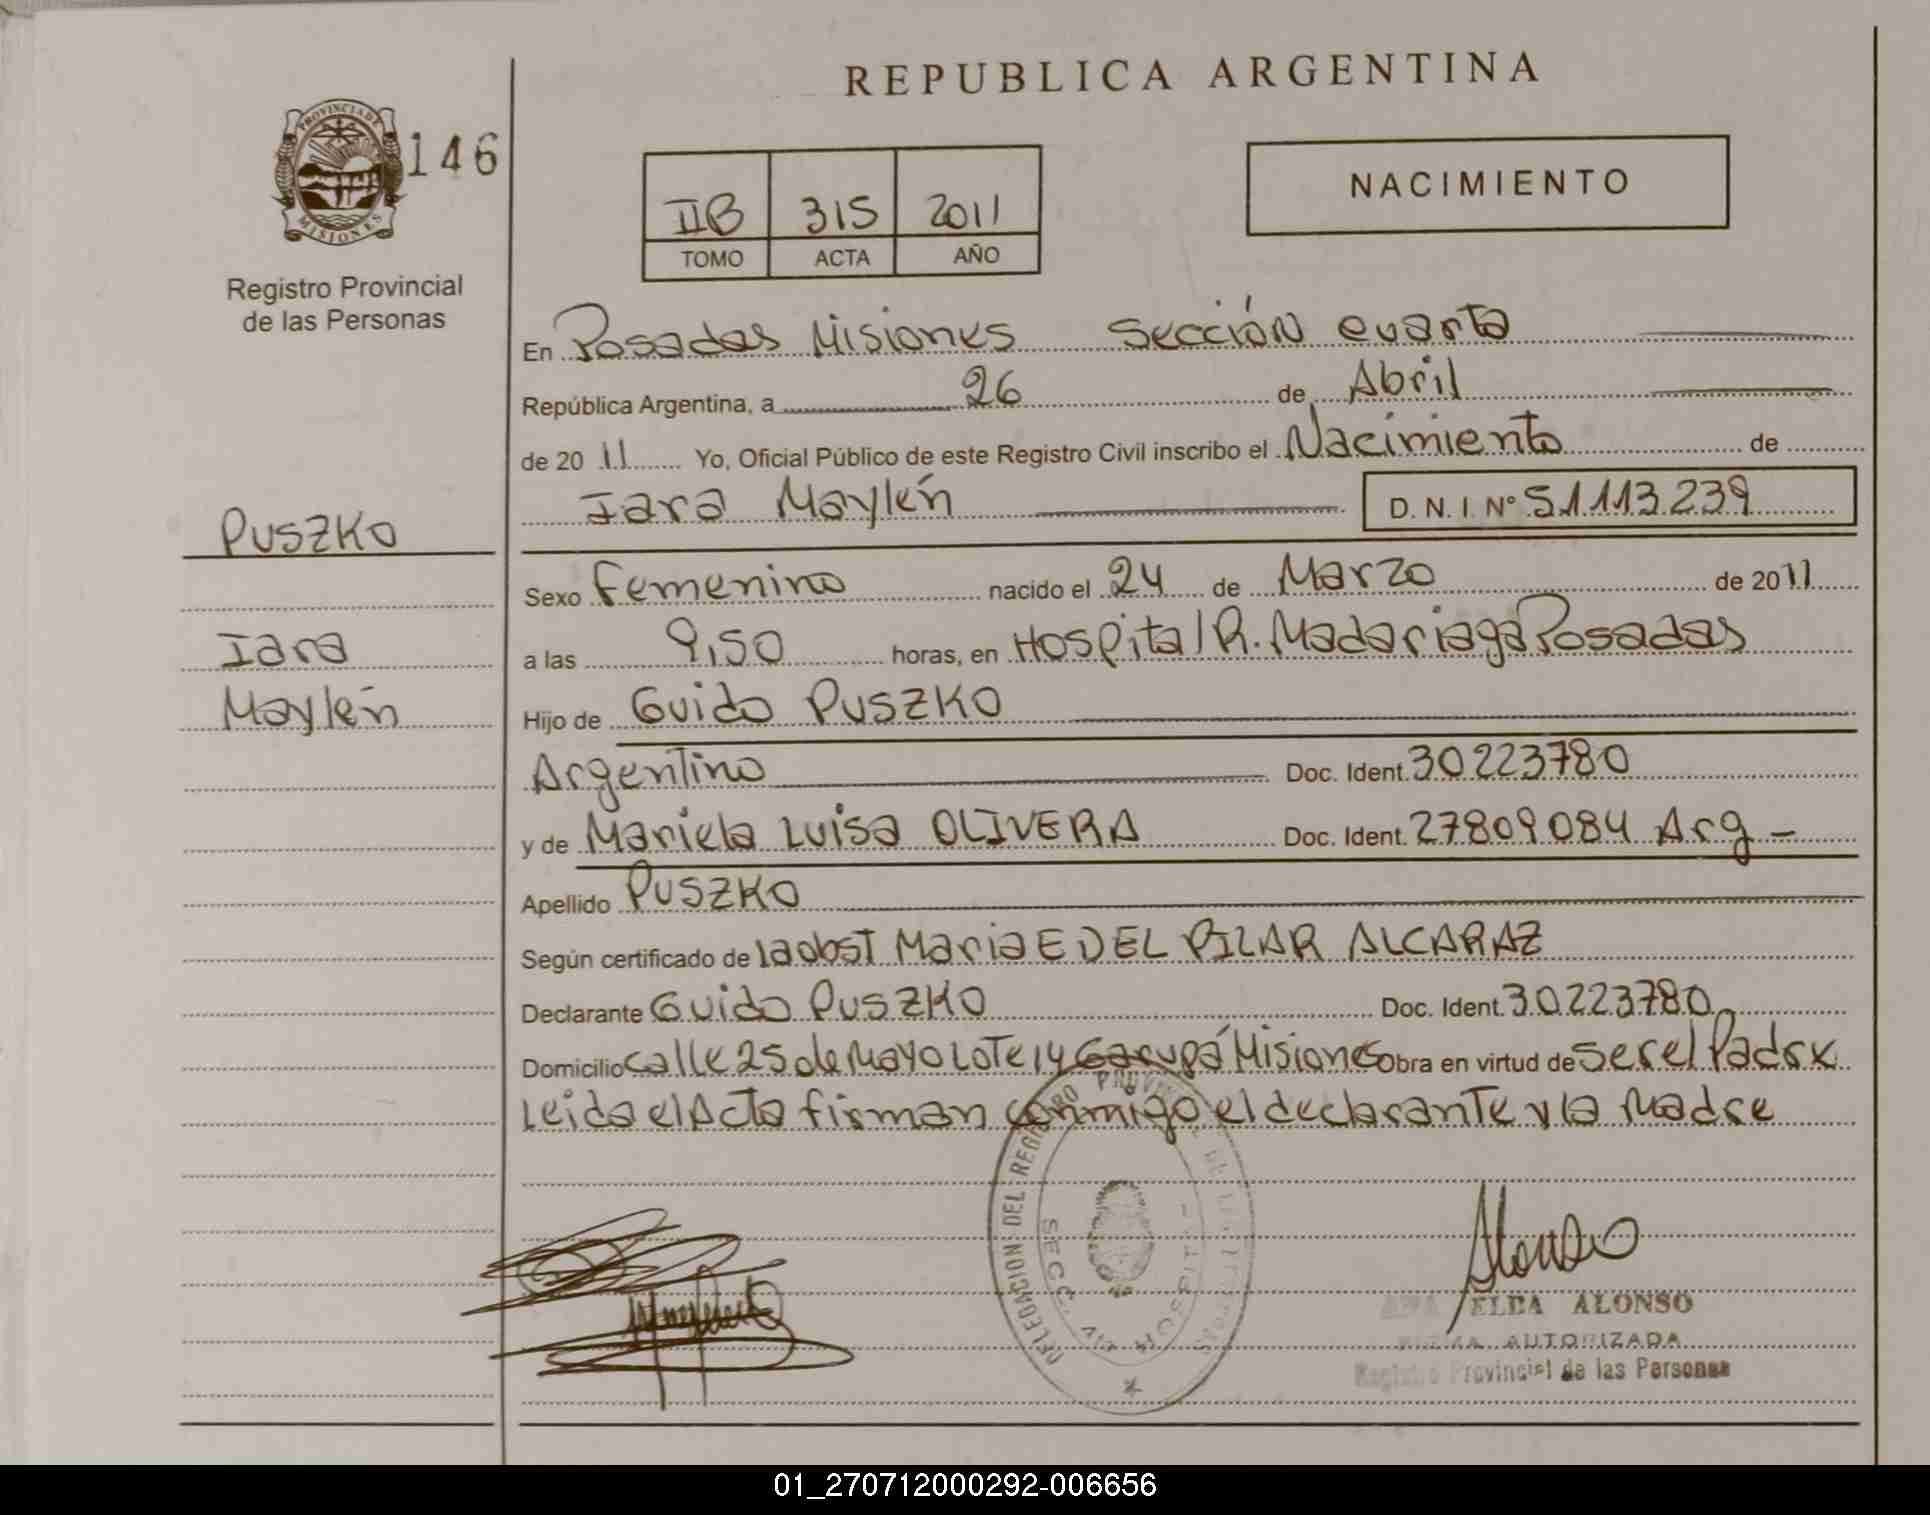 REPUBLICA ARGENTINA
PROVINCIA DE
MISIONES
146
Registro Provincial
de las Personas
IIB 315 2011
TOMO ACTA AÑO
NACIMIENTO
En Posadas Misiones Sección cuarta
República Argentina, a 26 de Abril
de 2011 Yo, Oficial Público de este Registro Civil inscribo el Nacimiento de
Iara Maylén D. N. I. Nº 51.113.239
PUSZKO
Sexo Femenino nacido el 24 de Marzo de 2011
Iara
a las 9,50 horas, en Hospital R. Madariaga Posadas
Maylén
Hijo de Guido PUSZKO
Argentino Doc. Ident. 30223780
y de Mariela Luisa OLIVERA Doc. Ident. 27809084 Arg -
Apellido PUSZKO
Según certificado de la obst Maria E DEL PILAR ALCARAZ
Declarante Guido PUSZKO Doc. Ident. 30223780
Domicilio calle 25 de Mayo Lote 14 Garupá Misiones Obra en virtud de ser el Padre
Leida el Acta firman conmigo el declarante y la Madre
DELEGACION DEL REGISTRO
SECC.
Alonso
ELDA ALONSO
AUTORIZADA
Registro Provincial de las Personas
01_270712000292-006656